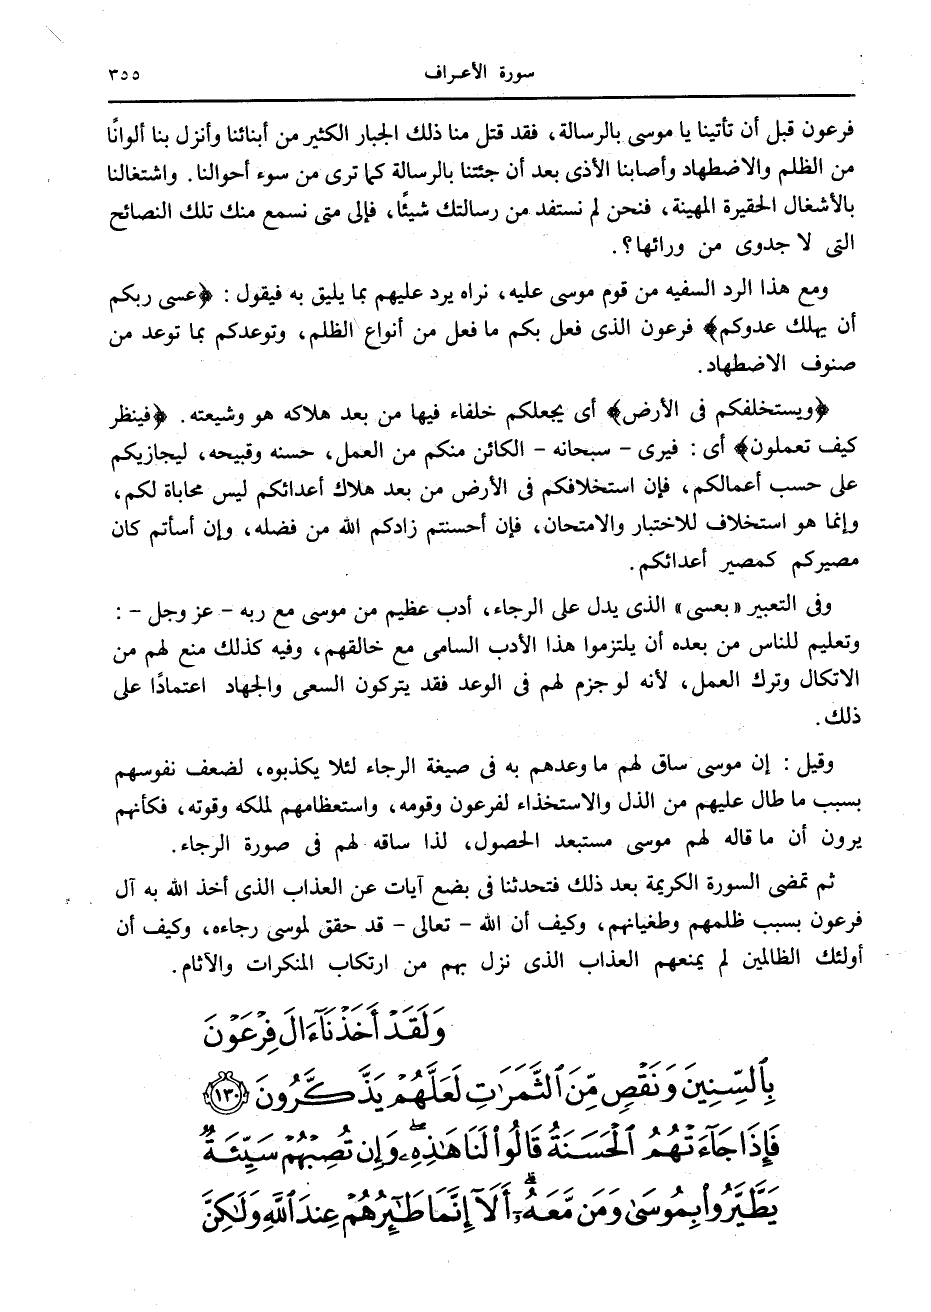 سورة الأعراف ٣٥٥
فرعون قبل أن تأتينا يا موسى بالرسالة، فقد قتل منا ذلك الجبار الكثير من أبنائنا وأنزل بنا ألوانًا
من الظلم والاضطهاد وأصابنا الأذى بعد أن جئتنا بالرسالة كما ترى من سوء أحوالنا. واشتغالنا
بالأشغال الحقيرة المهينة، فنحن لم نستفد من رسالتك شيئًا، فإلى متى نسمع منك تلك النصائح
التى لا جدوى من ورائها؟.
ومع هذا الرد السفيه من قوم موسى عليه، نراه يرد عليهم بما يليق به فيقول : ﴿عسى ربكم
أن يهلك عدوكم﴾ فرعون الذى فعل بكم ما فعل من أنواع الظلم، وتوعدكم بما توعد من
صنوف الاضطهاد.
﴿ويستخلفكم فى الأرض﴾ أى يجعلكم خلفاء فيها من بعد هلاكه هو وشيعته. ﴿فينظر
كيف تعملون﴾ أى : فيرى - سبحانه - الكائن منكم من العمل، حسنه وقبيحه، ليجازيكم
على حسب أعمالكم، فإن استخلافكم فى الأرض من بعد هلاك أعدائكم ليس محاباة لكم،
وإنما هو استخلاف للاختبار والامتحان، فإن أحسنتم زادكم الله من فضله، وإن أسأتم كان
مصيركم كمصير أعدائكم.
وفى التعبير «بعسى» الذى يدل على الرجاء، أدب عظيم من موسى مع ربه - عز وجل - :
وتعليم للناس من بعده أن يلتزموا هذا الأدب السامى مع خالقهم، وفيه كذلك منع لهم من
الاتكال وترك العمل، لأنه لو جزم لهم فى الوعد فقد يتركون السعى والجهاد اعتمادًا على
ذلك.
وقيل : إن موسى ساق لهم ما وعدهم به فى صيغة الرجاء لئلا يكذبوه، لضعف نفوسهم
بسبب ما طال عليهم من الذل والاستخذاء لفرعون وقومه، واستعظامهم لملكه وقوته، فكأنهم
يرون أن ما قاله لهم موسى مستبعد الحصول، لذا ساقه لهم فى صورة الرجاء.
ثم تمضى السورة الكريمة بعد ذلك فتحدثنا فى بضع آيات عن العذاب الذى أخذ الله به آل
فرعون بسبب ظلمهم وطغيانهم، وكيف أن الله - تعالى - قد حقق لموسى رجاءه، وكيف أن
أولئك الظالمين لم يمنعهم العذاب الذى نزل بهم من ارتكاب المنكرات والآثام.
وَلَقَدْ أَخَذْنَآ ءَالَ فِرْعَوْنَ
بِٱلسِّنِينَ وَنَقْصٍ مِّنَ ٱلثَّمَرَٰتِ لَعَلَّهُمْ يَذَّكَّرُونَ ١٣٠
فَإِذَا جَآءَتْهُمُ ٱلْحَسَنَةُ قَالُوا۟ لَنَا هَٰذِهِۦ ۖ وَإِن تُصِبْهُمْ سَيِّئَةٌ
يَطَّيَّرُوا۟ بِمُوسَىٰ وَمَن مَّعَهُۥٓ ۗ أَلَآ إِنَّمَا طَٰٓئِرُهُمْ عِندَ ٱللَّهِ وَلَٰكِنَّ